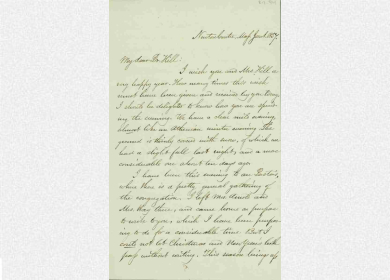 My dear Dr. Hill.
I wish you and Mrs Hill a
very happy year. How many times this wish
must have been given and received by you. Many
I should be delighted to know how you are spend-
ing the evening. We have a clear mild evening,
almost like an Athenian winter evening. The
ground is thinly covered with snow, of which we
had a slight fall last night, and a more
considerable one about ten days ago
I have been this evening to our
where there is a pretty general gathering of
the congregation. I left
Mrs there, and came home on purpose
to write to you, which I have been propos-
ing to do for a considerable time. But I
could not let Christmas and New Years both
pass without writing. This season brings up